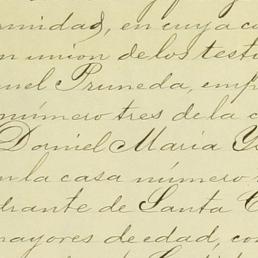 rmidad, en cuya c
n union de los testi
uel Pruneda, emp
número tres de la c
Daniel Maria Y
n la casa número
drante de Santa C
mayores de edad, co